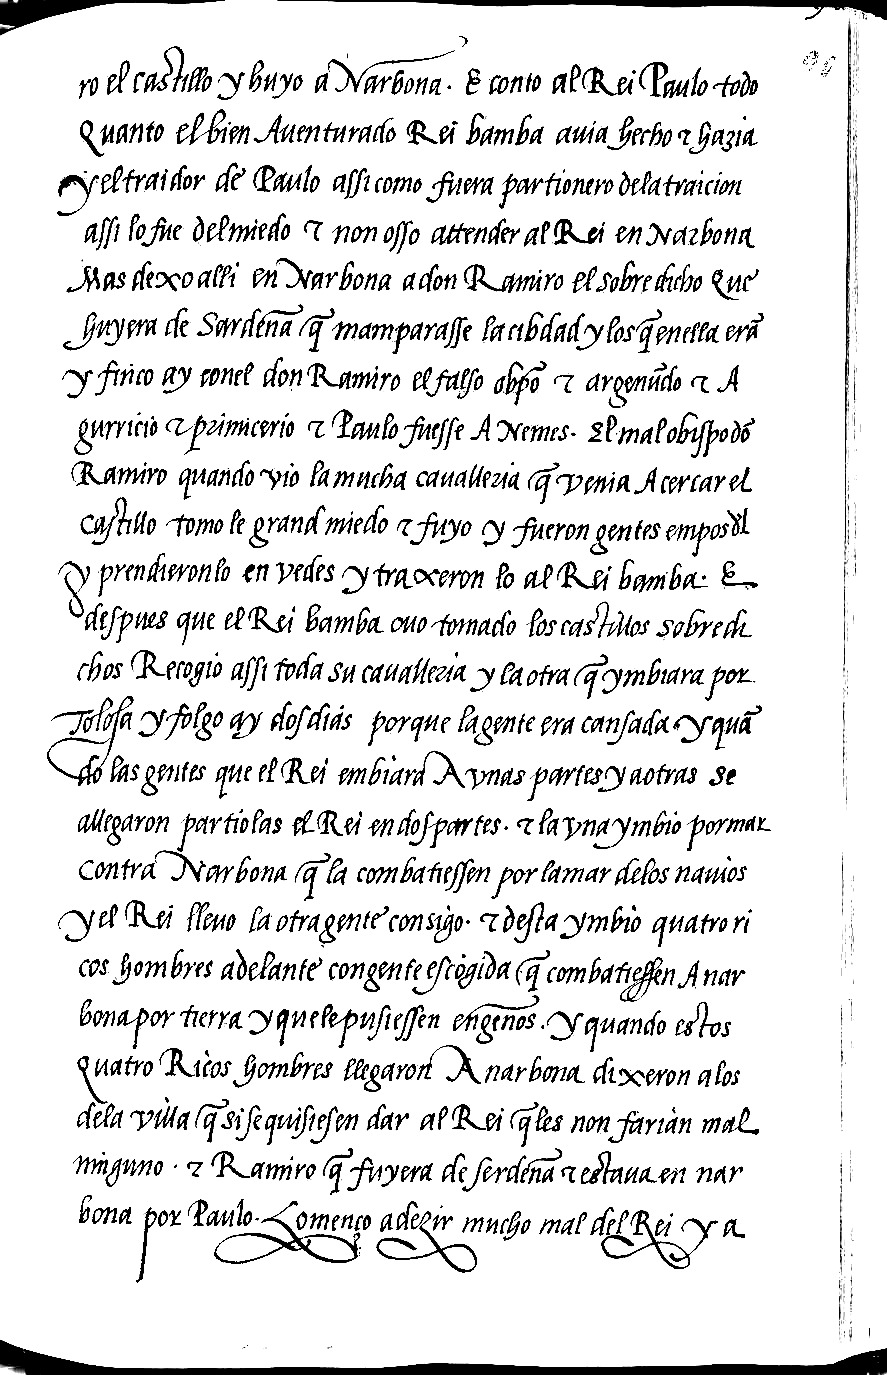 ro el castillo y huyo a Narbona. E conto al Rei Paulo todo
Quanto el bien Auenturado Rei bamba auia hecho ⁊ hazia
y el traidor de Paulo assi como fuera partionero dela traicion
assi lo fue del miedo ⁊ non osso attender al Rei en Narbona
Mas dexo alli en Narbona a don Ramiro el sobre dicho Que
huyera de Sardeña q̃ mamparasse la cibdad y los q̃ enella erã
y finco ay conel don Ramiro el falso obpõ ⁊ argenũdo ⁊ A
gurricio ⁊ primicerio ⁊ Paulo fuesse A Nemes. El mal obispo dõ
Ramiro quando vio la mucha caualleria q̃ venia A cercar el
castillo tomo le grand miedo ⁊ fuyo y fueron gentes empos dl
y prendieronlo en vedes y traxeron lo al Rei bamba. E
despues que el Rei bamba ouo tomado los castillos sobre di
chos Recogio assi toda su caualleria y la otra q̃ ymbiara por
Tolosa y folgo ay dos dias porque la gente era cansada y quã
do las gentes que el Rei embiara A vnas partes y a otras se
allegaron partiolas el Rei en dos partes. ⁊ la vna ymbio por mar
contra Narbona q̃ la combatiessen por la mar delos nauios
y el Rei lleuo la otra gente consigo. ⁊ desta ymbio quatro ri
cos hombres adelante con gente escogida q̃ combatiessen A nar
bona por tierra y que le pusiessen engeños. y quando estos
Quatro Ricos hombres llegaron A narbona dixeron a los
dela villa q̃ si se quisiesen dar al Rei q̃ les non farian mal
ninguno. ⁊ Ramiro q̃ fuyera de serdeña ⁊ estaua en nar
bona por Paulo. Començo a dezir mucho mal del Rei y a